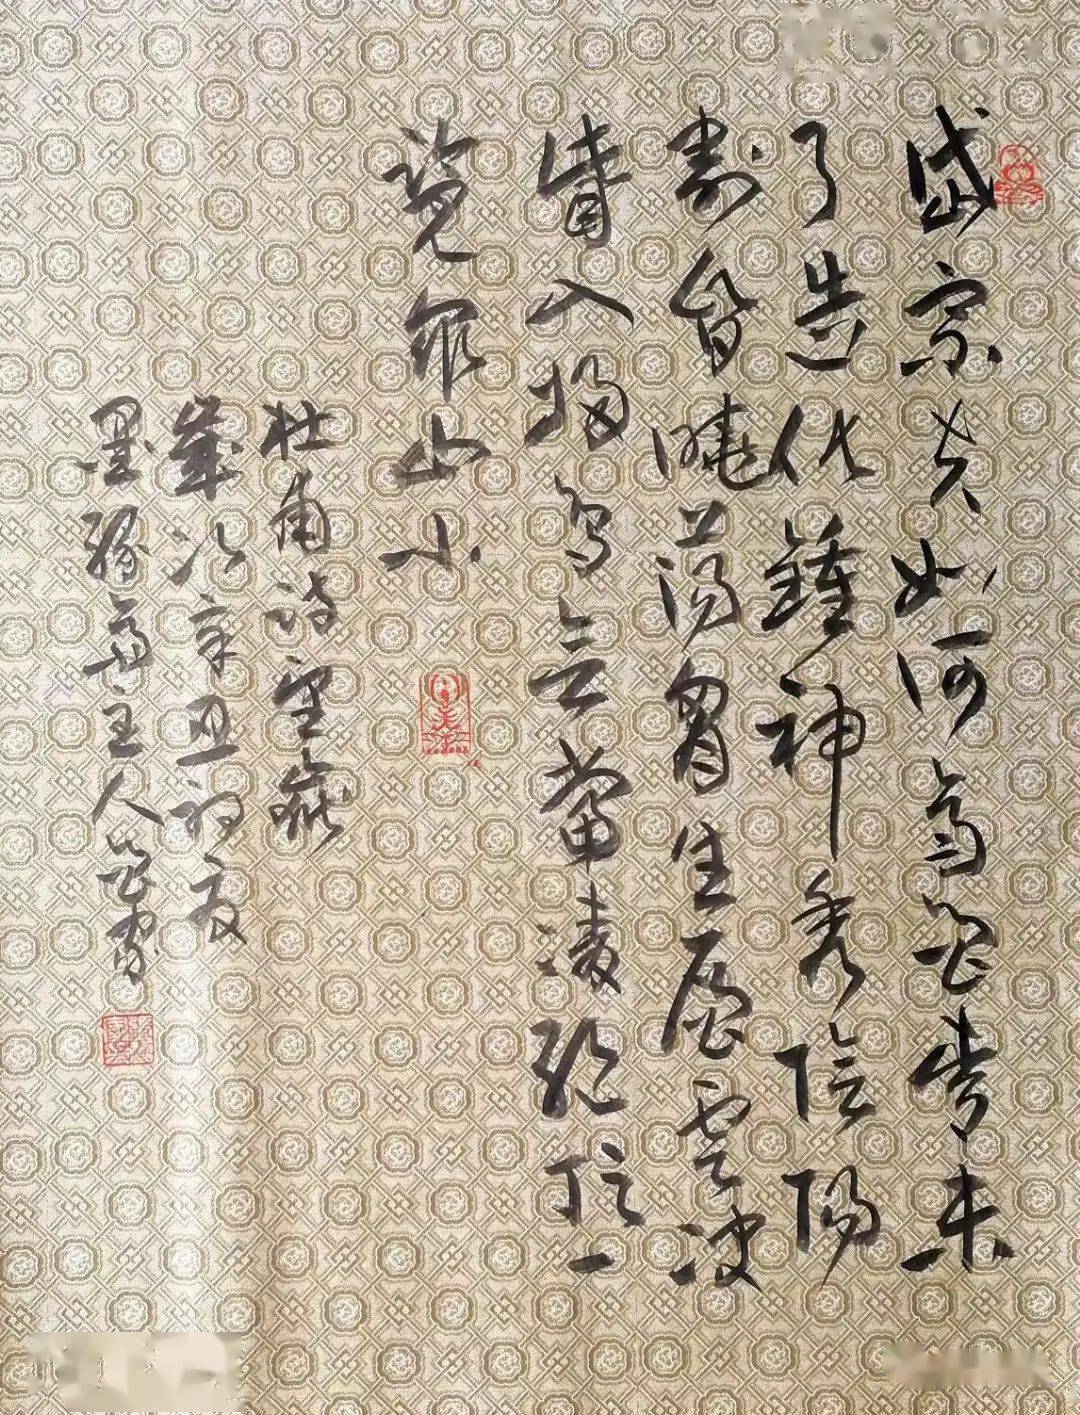 岱宗夫如何齊魯青未
了造化鍾神秀陰陽
割昏曉蕩胸生層雲決
眥入歸鳥会當凌絕頂一
覽眾山小
杜甫詩望嶽
歲次辛丑初夏
墨緣齋主人